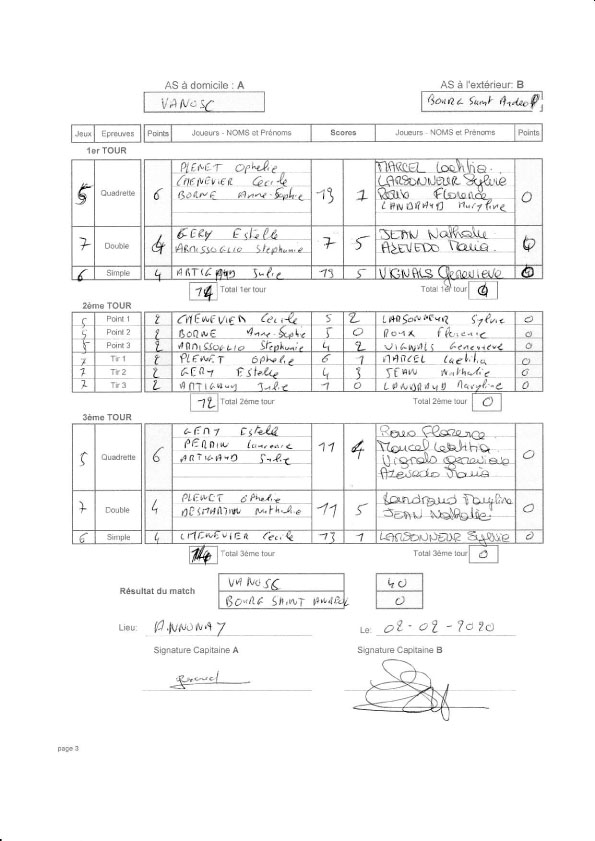 AS à domicile : A AS à l'extérieur: B
VANOSC BOURG Saint Andéol
Jeux Epreuves Points Joueurs - NOMS et Prénoms Scores Joueurs - NOMS et Prénoms Points
1er TOUR
PLENET Ophelie MARCEL Laetitia
CHENEVIER Cecile LARSONNEUR Sylvie
5 Quadrette 6 BORNE Anne-Sophie 13 7 Roux Florence 0
LANDRAUD Maryline
GERY Estelle JEAN Nathalie
7 Double 4 ARMISSOGLIO Stephanie 7 5 AZEVEDO Maria 0
6 Simple 4 ARTIGAUD Julie 13 5 VIGNALS Genevieve 0
14 Total 1er tour Total 1er tour 0
2ème TOUR
5 Point 1 2 CHENEVIER Cecile 5 2 LARSONNEUR Sylvie 0
5 Point 2 2 BORNE Anne-Sophie 5 0 ROUX Florence 0
5 Point 3 2 ARMISSOGLIO Stephanie 4 2 VIGNALS Genevieve 0
7 Tir 1 2 PLENET Ophelie 6 1 MARCEL Laetitia 0
7 Tir 2 2 GERY Estelle 4 3 JEAN Nathalie 0
7 Tir 3 2 ARTIGAUD Julie 1 0 LANDRAUD Maryline 0
12 Total 2ème tour Total 2ème tour 0
3ème TOUR
GERY Estelle Roux Florence
PERRIN Laurence Marcel Laetitia
5 Quadrette 6 ARTIGAUD Julie 11 4 Vignals Genevieve 0
Azevedo Maria
PLENET Ophelie Landraud Maryline
7 Double 4 DESMARTIN Nathalie 11 5 JEAN Nathalie 0
6 Simple 4 CHENEVIER Cecile 13 1 LARSONNEUR Sylvie 0
14 Total 3ème tour Total 3ème tour 0
Résultat du match
VANOSC 40
BOURG SAINT ANDEOL 0
Lieu: ANNONAY Le: 02-02-2020
Signature Capitaine A Signature Capitaine B
page 3